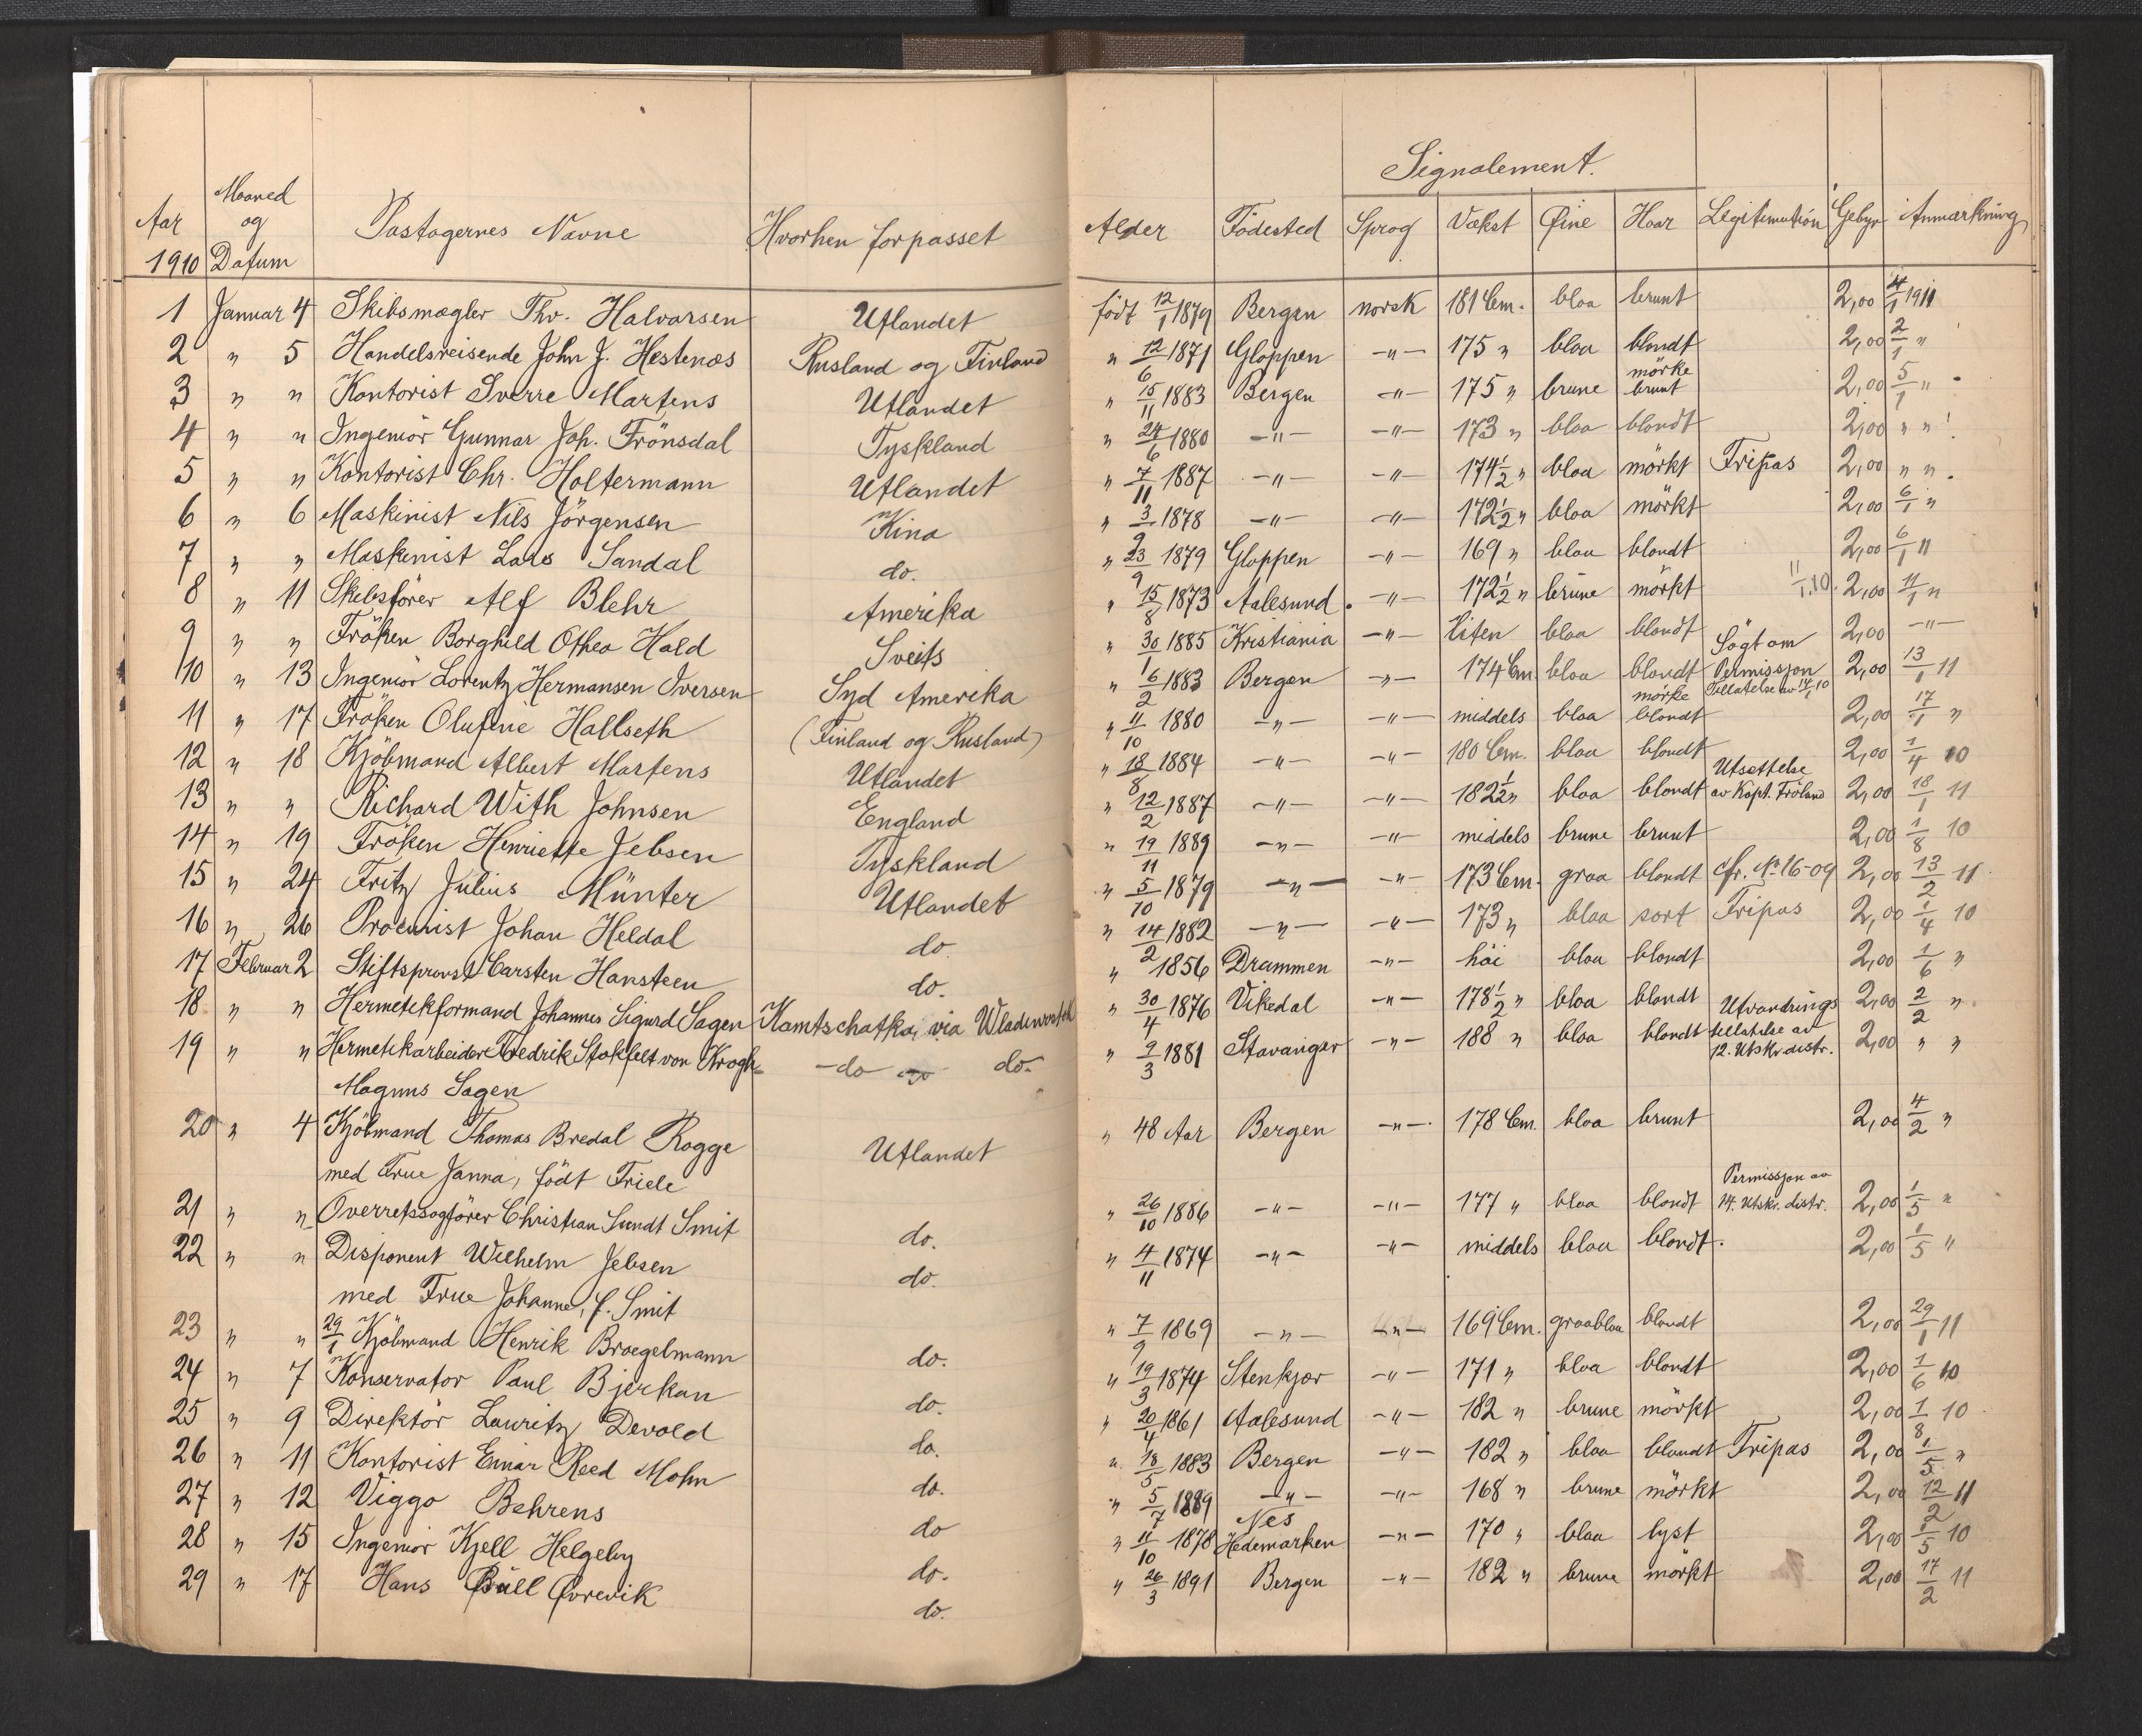 Signalement.
Aar 1910 Maaned og Datum Pastagernes Navne Hvorhen forpasset Alder Födested Sprog Vækst Øine Haar Legitimation Gebyr Anmærkning
1 Januar 4 Skibsmægler Thv. Halvorsen Utlandet født 12/1 1879 Bergen norsk 181 Cm. blaa brunt 2,00 4/1 1911
2 " 5 Handelsreisende John J. Hestenæs Rusland og Finland " 12/6 1871 Gloppen -"- 175 " blaa blondt 2,00 2/1 "
3 " " Kontorist Sverre Martens Utlandet " 15/11 1883 Bergen -"- 175 " brune mörke brunt 2,00 5/1 "
4 " " Ingeniör Gunnar Joh. Frönsdal Tyskland " 24/6 1880 -"- -"- 173 " blaa blondt 2,00 " "
5 " " Kontorist Chr. Holtermann Utlandet " 7/11 1887 -"- -"- 174 1/2 " blaa mörkt Fripas 2,00 " "
6 " 6 Maskinist Nils Jörgensen Kina " 3/9 1878 -"- -"- 172 1/2 " blaa mörkt 2,00 6/1 "
7 " " Maskinist Lars Sandal do. " 23/9 1879 Gloppen -"- 169 " blaa blondt 2,00 6/1 11
8 " 11 Skibsförer Alf Blehr Amerika " 15/8 1873 Aalesund. -"- 172 1/2 " brune mörkt 11/1.10. 2,00 11/1 "
9 " " Fröken Borghild Othea Hald Sveits " 30/1 1885 Kristiania -"- liten blaa blondt 2,00 -"-
10 " 13 Ingeniör Lorentz Hermansen Iversen Syd Amerika " 16/2 1883 Bergen -"- 174 Cm. blaa blondt Sögt om Permissjon Tillatelse av 14/1 10 2,00 13/1 11
11 " 17 Fröken Olufine Hallseth (Finland og Rusland) " 11/10 1880 -"- -"- middels blaa mörke blondt 2,00 17/1 "
12 " 18 Kjöbmand Albert Martens Utlandet " 18/8 1884 -"- -"- 180 Cm. blaa blondt 2,00 1/4 10
13 " " Richard With Johnsen England " 12/2 1887 -"- -"- 182 1/2 " blaa blondt Utsettelse av Kapt. Fröland 2,00 18/1 11
14 " 19 Fröken Henriette Jebsen Tyskland " 19/11 1889 -"- -"- middels brune brunt 2,00 1/8 10
15 " 24 Fritz Julius Münter Utlandet " 5/10 1879 -"- -"- 173 Cm. graa blondt cfr. No 16-09 2,00 13/2 11
16 " 26 Procurist Johan Heldal do " 14/2 1882 -"- -"- 173 " blaa sort Fripas 2,00 1/4 10
17 Februar 2 Stiftsprovst Carsten Hansteen do. " 1856 Drammen -"- höi blaa blondt 2,00 1/6 "
18 " " Hermetikformand Johannes Sigurd Sagen Kamtschatka, via Wladiwostok " 30/4 1876 Vikedal -"- 178 1/2 " blaa blondt Utvandrings 2,00 2/2 "
19 " " Hermetikarbeider Fredrik Stokfelt von Krogh do do. " 9/3 1881 Stavanger -"- 188 " blaa blondt tillatelse av 12. Utskr. distr. 2,00 " "
Magnus Sagen
20 " 4 Kjöbmand Thomas Bredal Rogge Utlandet " 48 Aar Bergen -"- 178 Cm. blaa brunt 2,00 4/2 "
med Frue Janna, född Friele
21 " " Overretssagförer Christian Sundt Smit do. " 26/10 1886 -"- -"- 177 " blaa blondt Permissjon av 14. Utskr. distr. 2,00 1/5 "
22 " " Disponent Wilhelm Jebsen do. " 4/11 1874 -"- -"- middels blaa blondt. 2,00 1/5 "
med Frue Johanne, f. Smit
23 " " 29/1 Kjöbmand Henrik Broegelmann do. " 7/9 1869 -"- -"- 169 Cm. graablaa blondt 2,00 29/1 11
24 " 7 Konservator Paul Bjerkan do. " 19/3 1874 Stenkjær -"- 171 " blaa blondt 2,00 1/6 10
25 " 9 Direktör Lauritz Devold do. " 20/4 1861 Aalesund -"- 182 " brune mörkt 2,00 1/8 10
26 " 11 Kontorist Einar Reed Mohn do. " 18/5 1883 Bergen -"- 182 " blaa blondt Fripas 2,00 1/5 "
27 " 12 Viggo Behrens do " 5/7 1889 -"- -"- 168 " brune mörkt 2,00 12/2 11
28 " 15 Ingeniör Kjell Helgeby do. " 11/10 1878 Nes Hedemarken -"- 170 " blaa lyst 2,00 1/5 10
29 " 17 Hans Büll Øvrevik do. " 26/3 1891 Bergen -"- 182 " brune mörkt 2,00 17/2 11